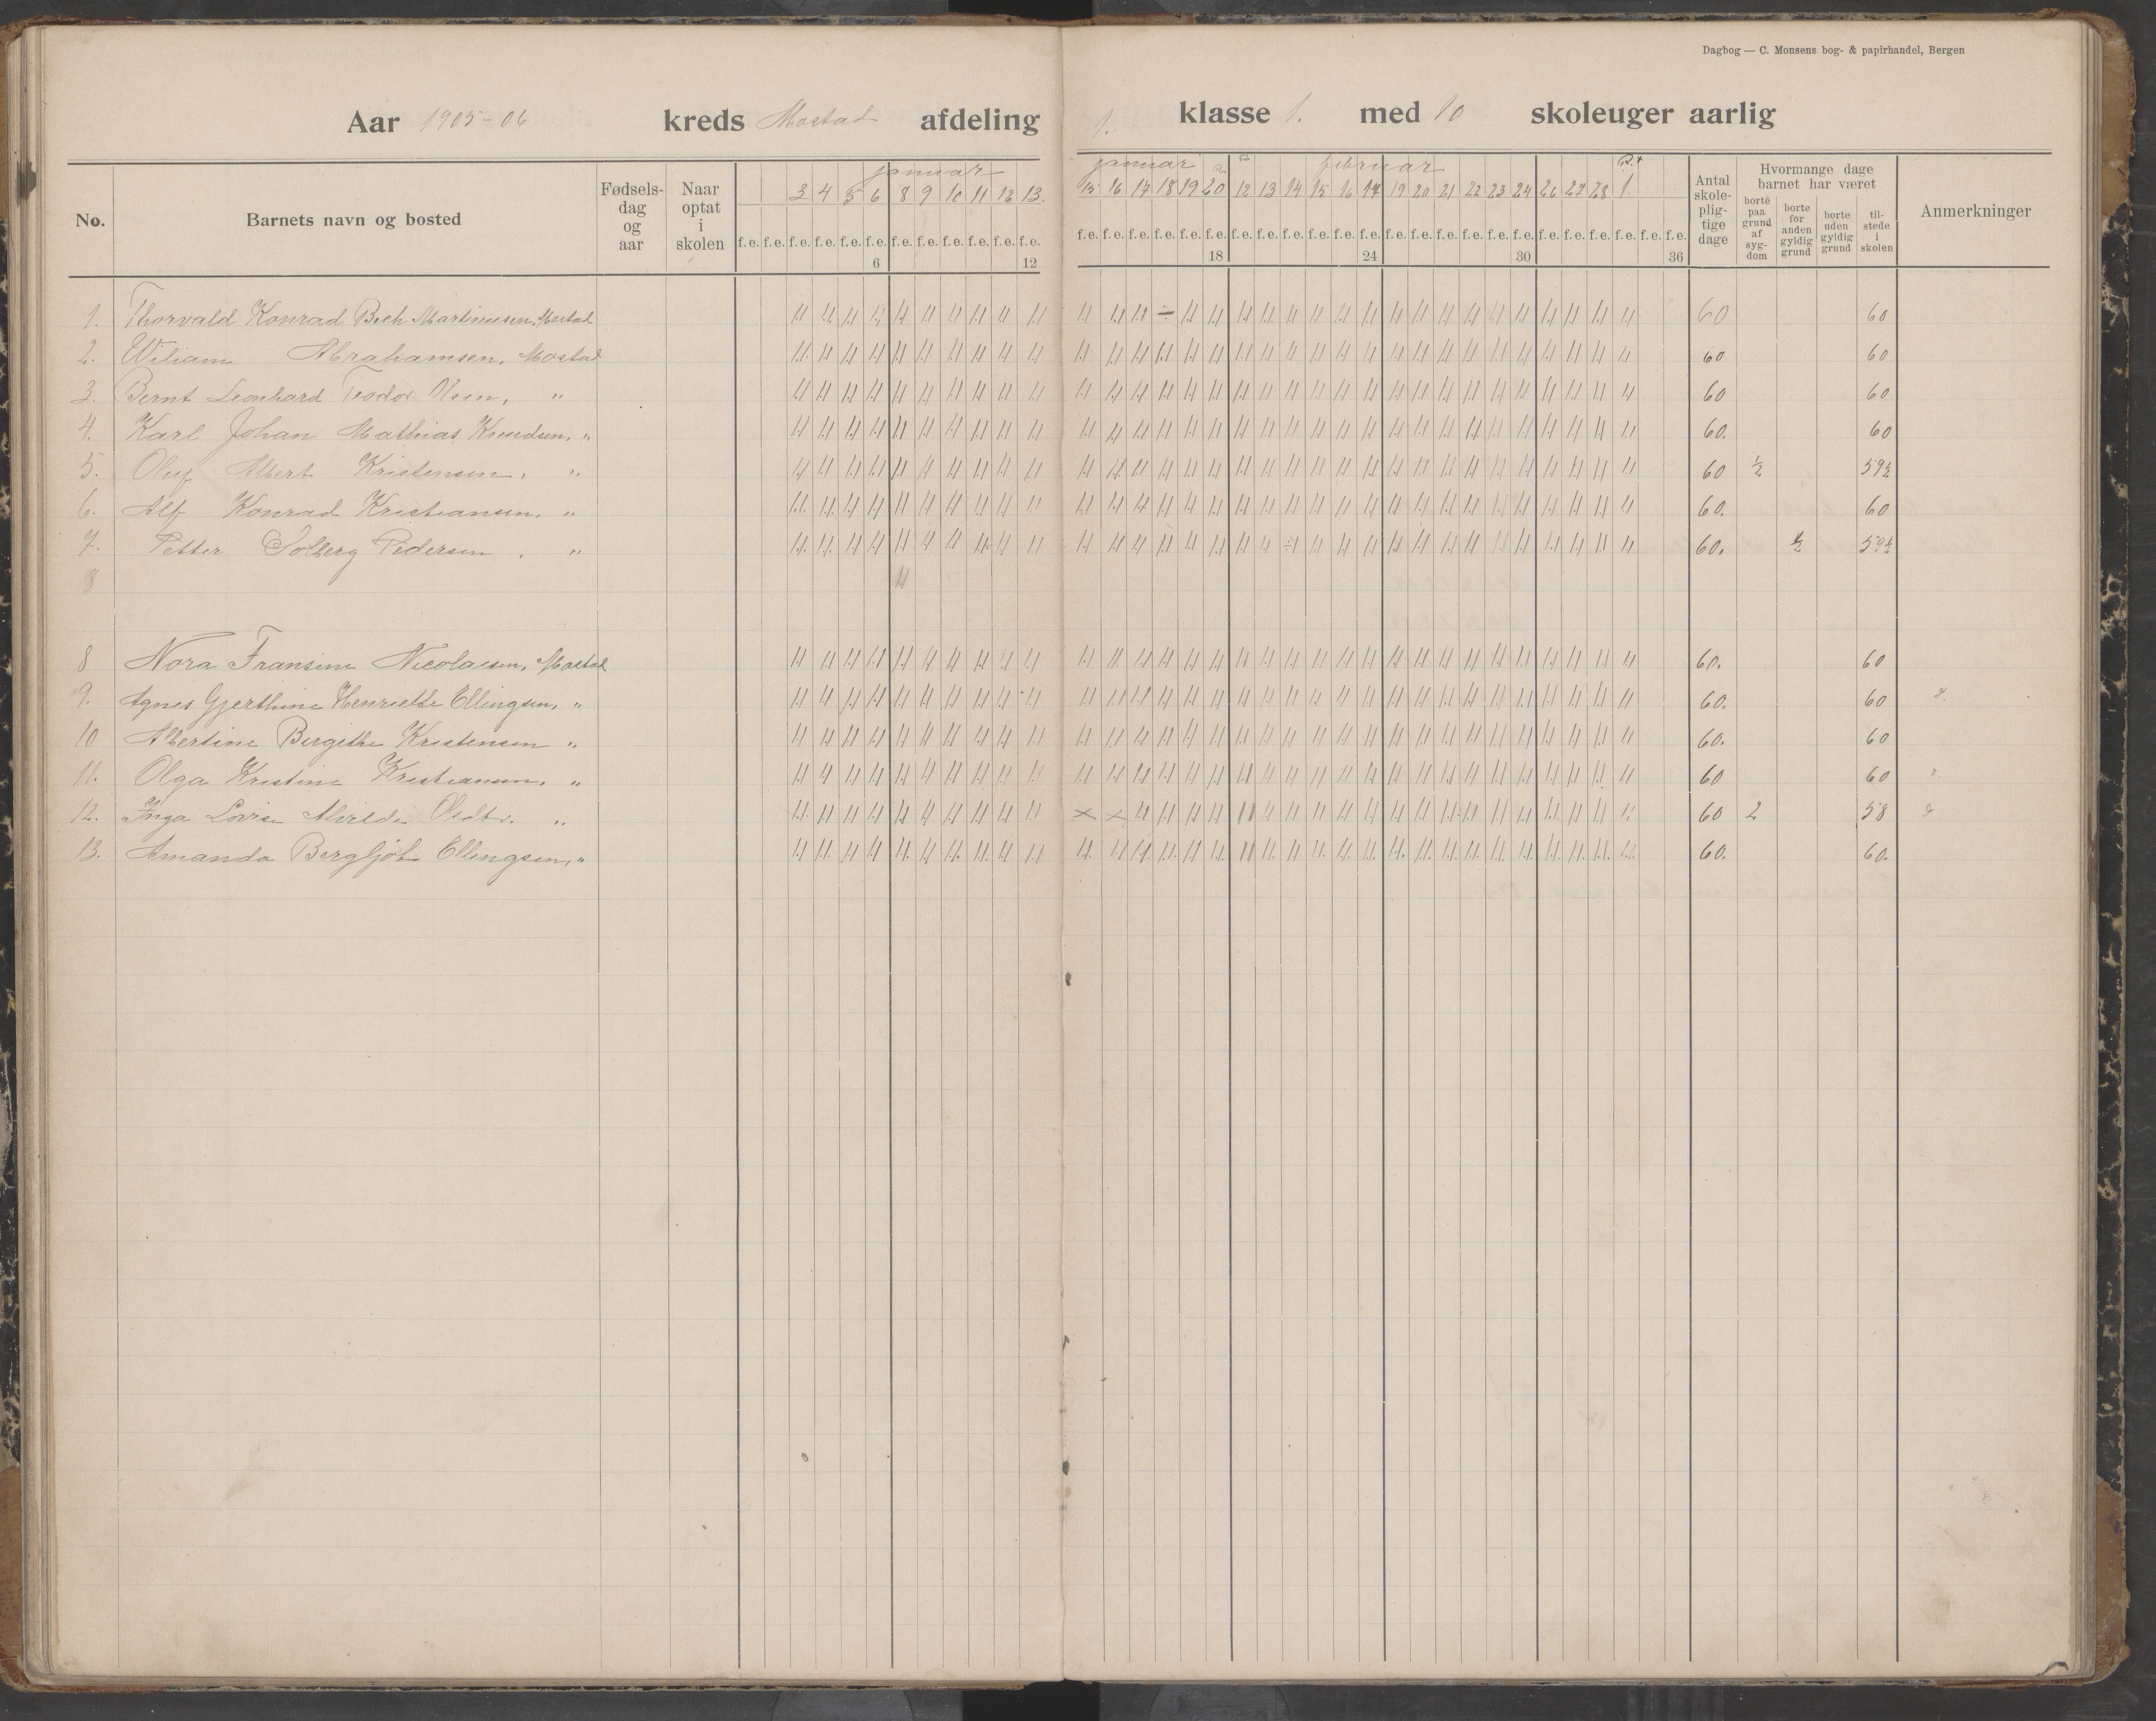 Dagbog — C. Monsens bog- & papirhandel, Bergen
Aar 1905-06 kreds Mostad afdeling 1. klasse 1. med 10 skoleuger aarlig
No. Barnets navn og bosted Fødselsdag og aar Naar optat i skolen
januar
3 4 5 6 8 9 10 11 12 13.
f.e. f.e. f.e. f.e. f.e. f.e. f.e. f.e. f.e. f.e. f.e. f.e.
6 12
januar februar
15 16 17 18 19 20 12 13 14 15 16 17 19 20 21 22 23 24 26 27 28 1.
f.e. f.e. f.e. f.e. f.e. f.e. f.e. f.e. f.e. f.e. f.e. f.e. f.e. f.e. f.e. f.e. f.e. f.e. f.e. f.e. f.e. f.e. f.e. f.e.
18 24 30 36
Antal skolepligtige dage
Hvormange dage barnet har været
borte paa grund af sygdom
borte for anden gyldig grund
borte uden gyldig grund
tilstede i skolen
Anmerkninger
1. Thorvald Konrad Bech Martinusen, Mostad 60 60
2. Wiliam Abrahamsen, Mostad 60 60
3. Bernt Leonhard Teodor Olsen, " 60 60
4. Karl Johan Mathias Knudsen, " 60. 60
5. Oluf Albert Kristensen, " 60 ½ 59½
6. Alf Konrad Kristiansen, " 60. 60
7. Petter Solberg Pedersen, " 60. ½ 59½
8
8 Nora Fransine Nicolaisen, Mostad 60. 60
9. Agnes Gjerthine Henriette Ellingsen, " 60. 60
10 Albertine Bergithe Kristensen " 60. 60
11. Olga Kristine Kristiansen, " 60 60
12. Inga Lovise Alvilde Olsdtr. " 60 2 58
13. Amanda Bergljot Ellingsen, " 60. 60.